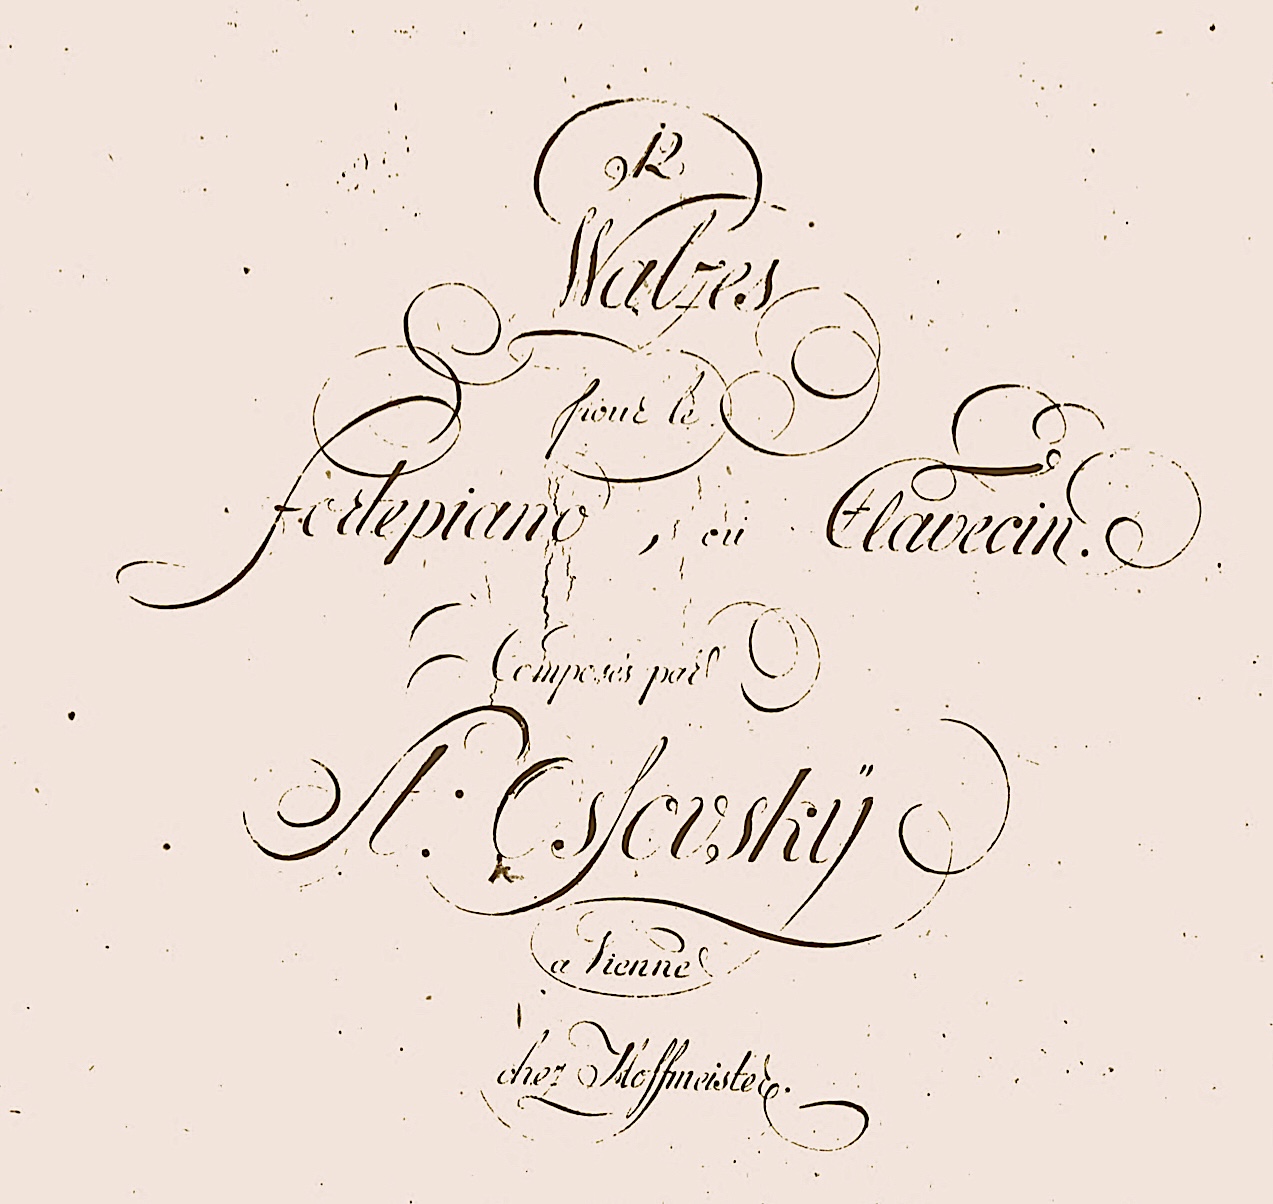 12
Walzes
pour le
Fortepiano, ou Clavecin.
Composés par
A. Ossovskÿ
a Vienne
chez Hoffmeister.